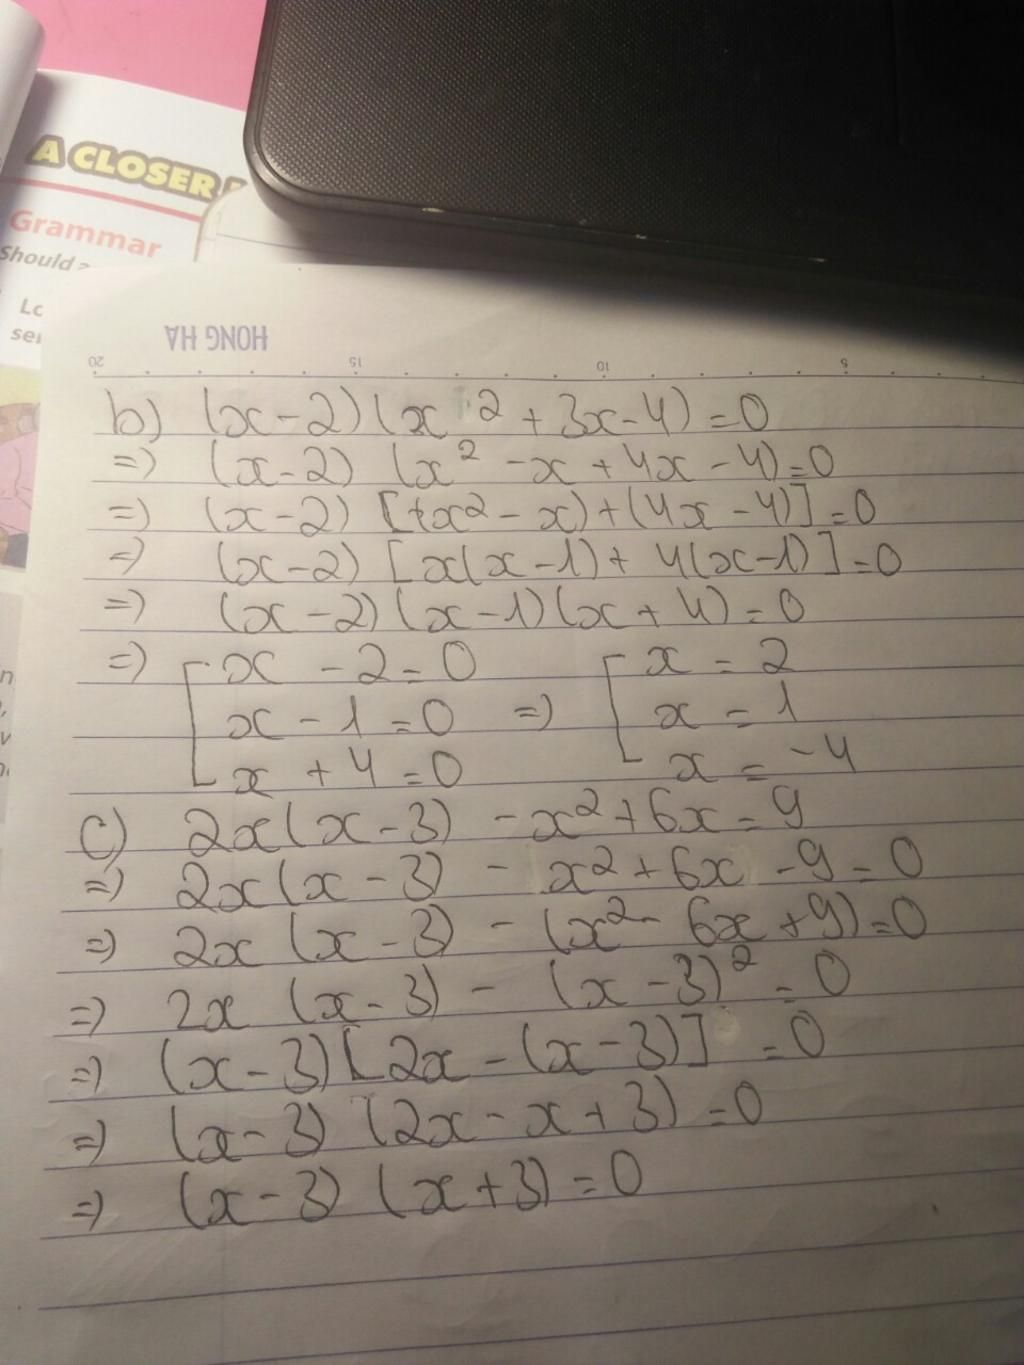 A CLOSER
Grammar
Should a
Lo
HONG HA
20 15 10 5
b) (x-2)(x² + 3x-4)=0
=) (x-2) (x² -x + 4x - 4)=0
=) (x-2) [(x² - x)+(4x -4)]=0
=) (x-2) [x(x-1)+ 4(x-1)]=0
=) (x-2)(x-1)(x+4)=0
=) [ x - 2 = 0 [ x = 2
x - 1 = 0 =) x = 1
x + 4 = 0 x = -4
c) 2x(x-3) -x²+6x = 9
=) 2x(x-3) - x²+6x -9=0
=) 2x (x-3) - (x²- 6x +9)=0
=) 2x (x-3) - (x-3)² = 0
=) (x-3)[2x-(x-3)] = 0
=) (x-3) (2x-x+3)=0
=) (x-3) (x+3)=0